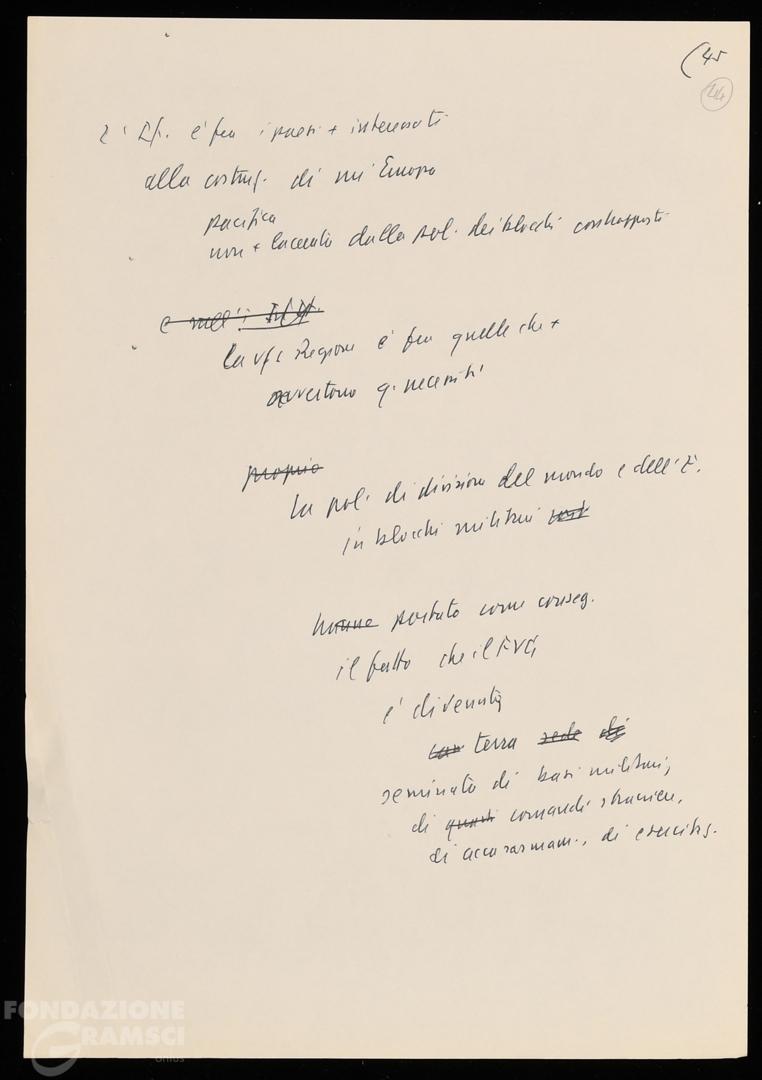 (45
44
L' It. è fra i paesi + interessati
alla costruz. di un' Europa
pacifica
non + lacerata dalla pol. dei blocchi contrapposti
e nell'
La vs Regione è fra quelle che +
avvertono q. necessità
proprio
La pol. di divisione del mondo e dell' E.
in blocchi militari
hanno portato come conseg.
il fatto che il FVG
è divenuta
terra sede di
seminata di basi militari,
di quasi comandi stranieri,
di accasermam., di esercitaz.
FONDAZIONE
GRAMSCI
onlus